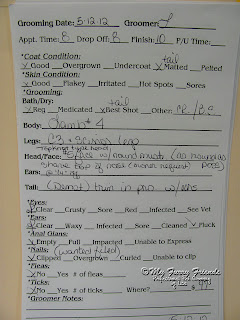 Grooming Date: 5-12-12 Groomer: L
Appt. Time: 8 Drop Off: 8 Finish: 10 P/U Time:
*Coat Condition: tail
√ Good Overgrown Undercoat √ Matted Pelted
*Skin Condition:
√ Good Flakey Irritated Hot Spots Sores
*Grooming:
Bath/Dry: tail
√ Reg Medicated √ Best Shot Other: CR/B.E
Body: Clamb# 4
Legs: C3 + Scissor
Head/Face:
nose (owner request)
Ears:
Tail: (Donut) trim in pro w/
*Eyes:
Clear Crusty Sore Red Infected See Vet
*Ears:
Clear Waxy Infected Sore Cleaned √ Pluck
*Anal Glans:
√ Empty Full Impacted Unable to Express
*Nails: (wanted filed)
√ Clipped Overgrown Curled Unable to clip
*Fleas:
√ No Yes # of fleas
*Ticks:
√ No Yes # of ticks Where?
*Groomer Notes:
©My Furry Friends